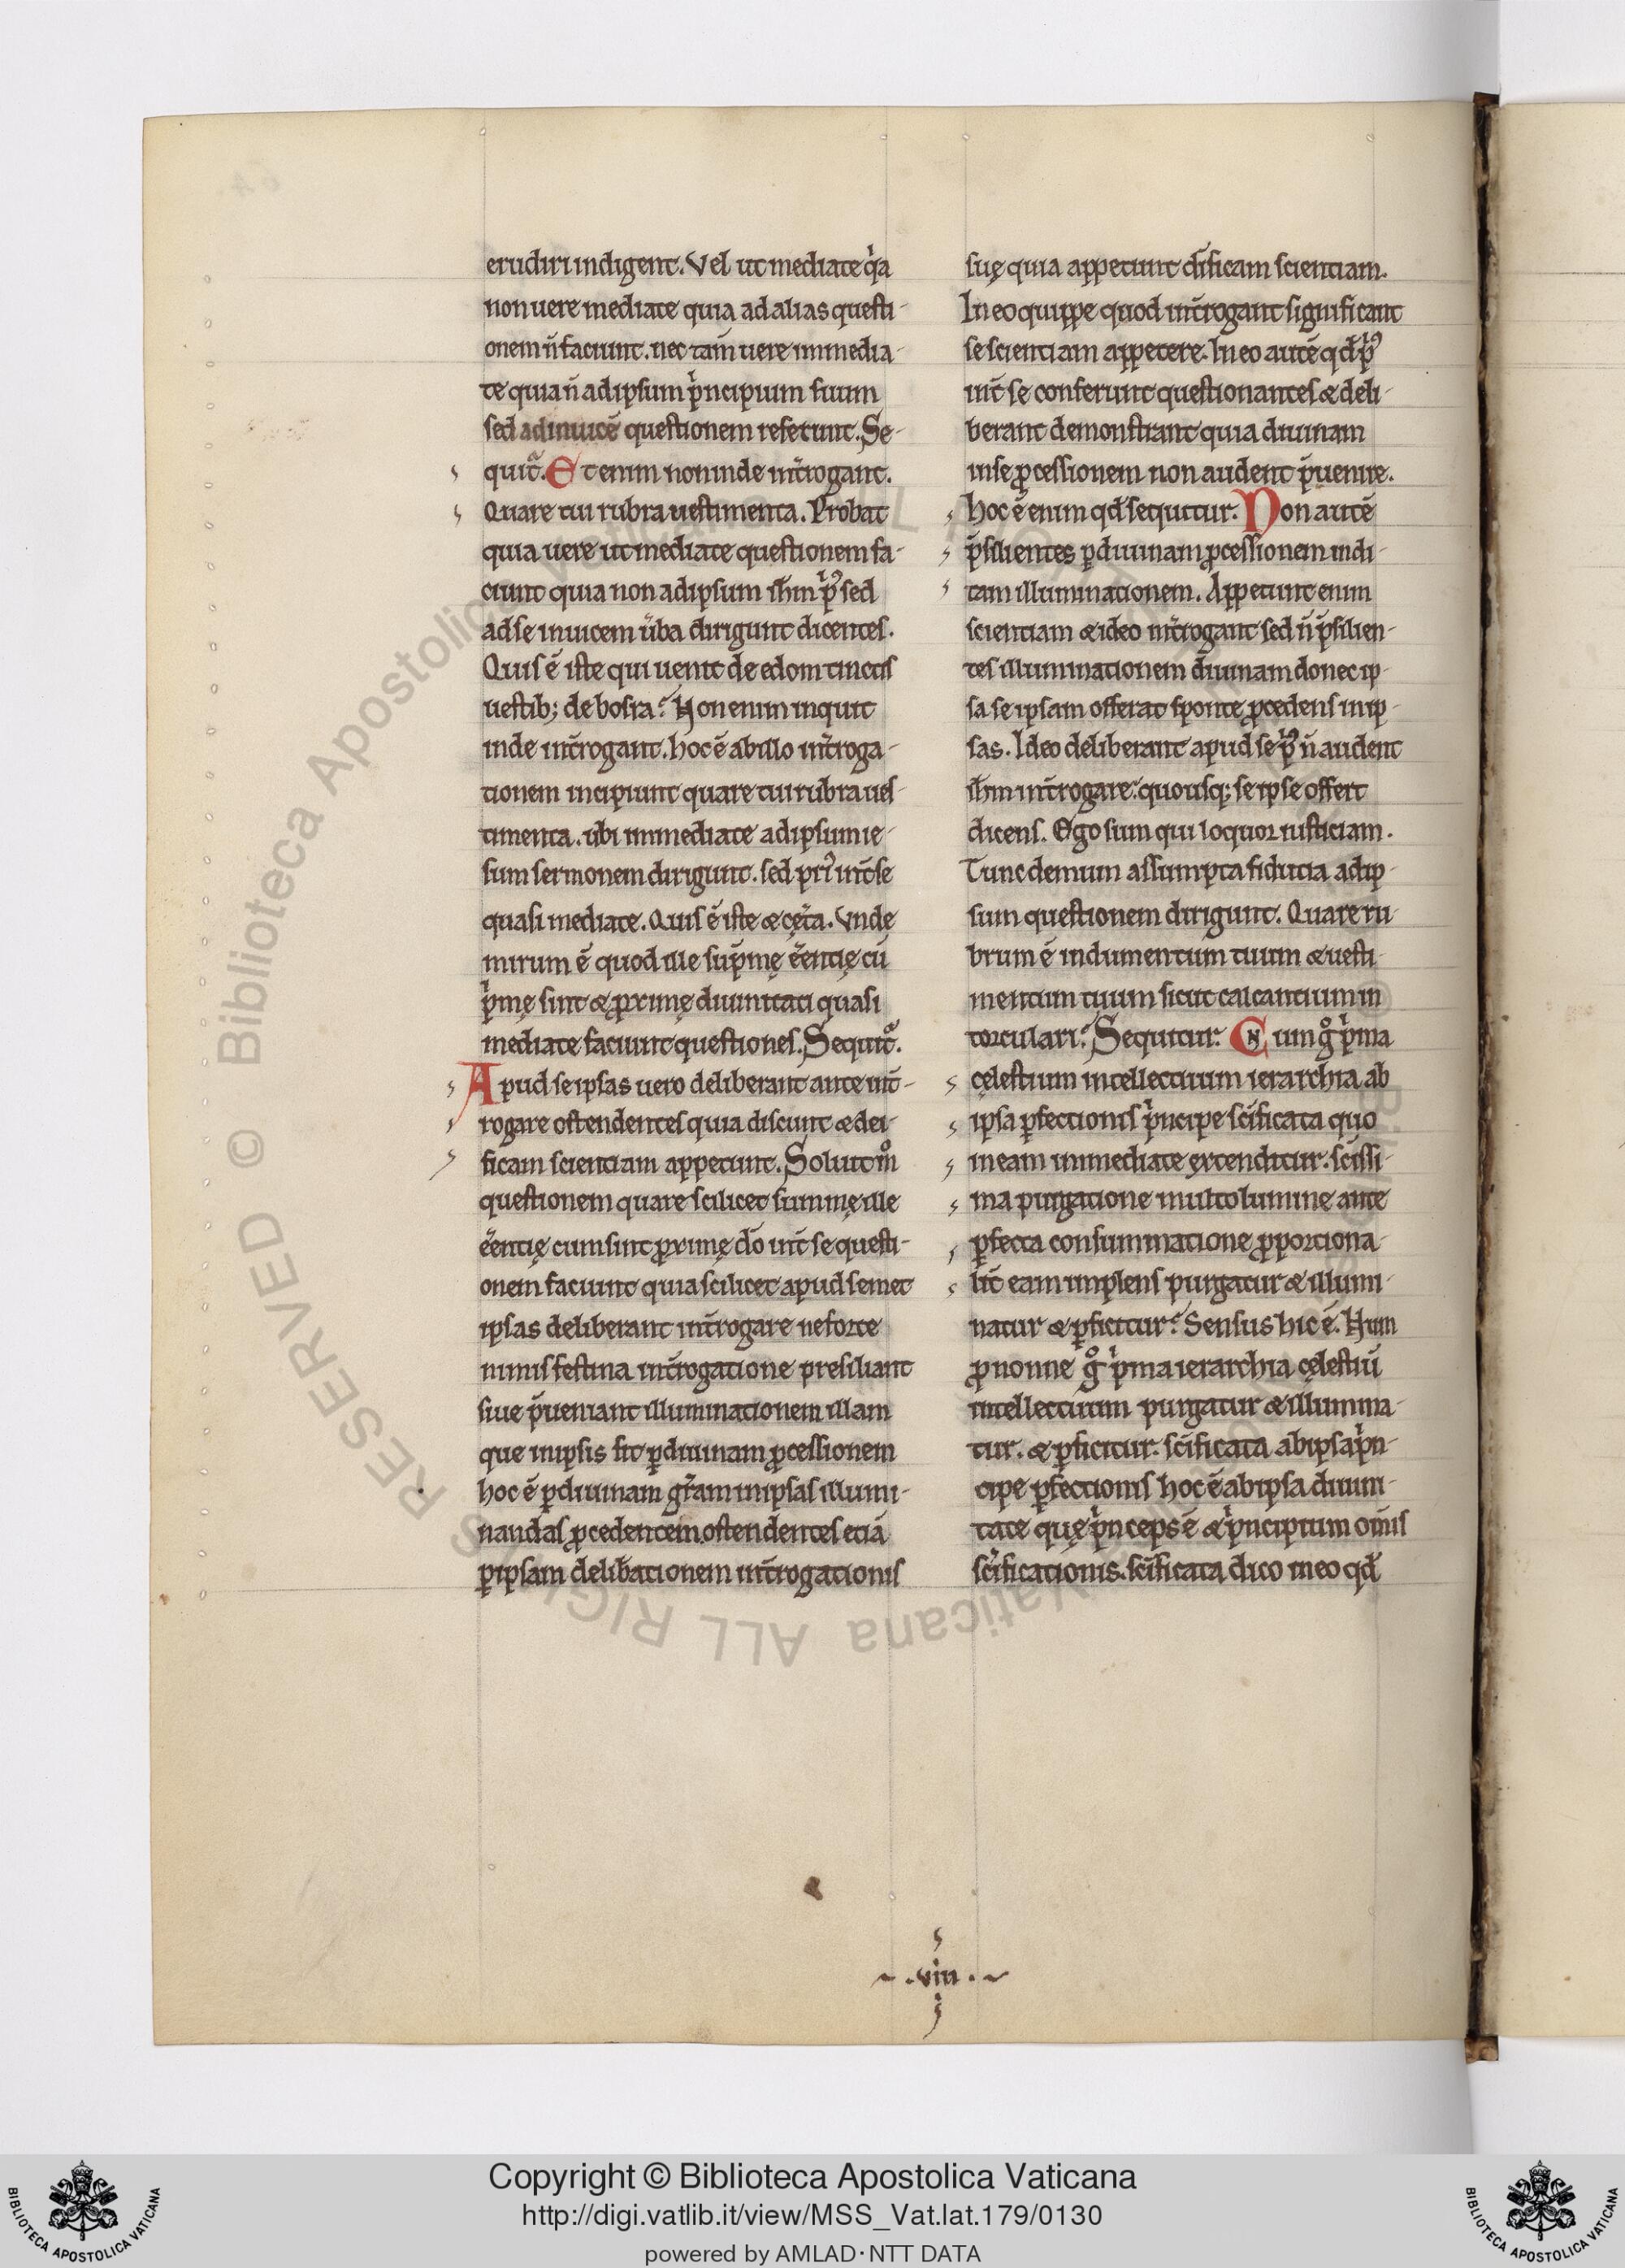 erudiri indigent. Vel ut mediate qͥa
non uere mediate quia ad alias questi-
onem n̄ faciunt. nec tam̄ uere immedia-
te quia n̄ ad ipsum pͥncipium suum
sed adinuicē questionem referunt. Se-
quit᷑. Etenim non inde int̄rogant.
Quare tui rubra uestimenta. Probat
quia uere ut mediate questionem fa-
ciunt quia non ad ipsum ih̄m pͥꝰ sed
ad se inuicem ūba dirigunt dicentes.
Quis ē iste qui uenit de edom tinctis
uestib; de bosra? Non enim inquit
inde int̄rogant. hoc ē ab illo int̄roga-
tionem incipiunt quare tui rubra ues-
timenta. ubi immediate ad ipsum ie-
sum sermonem dirigunt. sed priꝰ int̄ se
quasi mediate. Quis ē iste & cęt̄a. Vnde
mirum ē quod ille sup̄mę ēentię cū
pͥmę sint & ꝓximę diuinitati quasi
mediate faciunt questiones. Sequit᷑.
Apud se ipsas uero deliberant ante int̄-
rogare ostendentes quia discunt & dei-
ficam scientiam appetunt. Soluit mͦ
questionem quare scilicet summę ille
ēentię cum sint ꝓximę dō int̄ se questi-
onem faciunt quia scilicet apud semet
ipsas deliberant int̄rogare ne forte
nimis festina int̄rogatione presiliant
siue p̄ueniant illuminationem illam
que in ipsis fit ꝑ diuinam ꝓcessionem
hoc ē ꝑ diuinam gr̄am in ipsas illumi-
nandas ꝓcedentem. ostendentes etiā
ꝑ ipsam delib̄ationem int̄rogationis
suę quia appetunt d̄ificam scientiam.
In eo quippe quod int̄rogant significant
se scientiam appetere. In eo autē qd̄ pͥꝰ
int̄ se conferunt questionantes & deli-
berant demonstrant quia diuinam
in se ꝓcessionem non audent p̄uenire.
Hoc ē enim qd̄ sequitur. Non autē
p̄silientes ꝑ diuinam ꝓcessionem indi-
tam illuminationem. Appetunt enim
scientiam & ideo int̄rogant sed n̄ p̄silien-
tes illuminationem diuinam donec ip-
sa se ipsam offerat sponte ꝓcedens in ip-
sas. Ideo deliberant apud se pͥꝰ n̄ audent
ih̄m int̄rogare. quousq; se ipse offert
dicens. Ego sum qui loquor iusticiam.
Tunc demum assumpta fiducia ad ip-
sum questionem dirigunt. Quare ru-
brum ē indumentum tuum & uesti-
mentum tuum sicut calcantium in
torculari? Sequitur. Cum gͦ pͥma
cęlestium intellectuum ierarchia ab
ipsa ꝑfectionis pͥncipe sc̄ificata quo
in eam immediate extenditur. sc̄issi-
ma purgatione multo lumine ante
ꝑfecta consummatione ꝓportiona-
lit̄ eam implens purgatur & illumi-
natur & ꝑficitur? Sensus hic ē. Num
ꝓ nonne gͦ pͥma ierarchia cęlestiū
intellectuum purgatur & illumina-
tur. & ꝑficitur. sc̄ificata ab ipsa pͥn-
cipe ꝑfectionis hoc ē ab ipsa diuini-
tate quę pͥnceps ē & pͥncipium om̄is
sc̄ificationis. sc̄ificata dico in eo qd̄
~ .viii. ~
Copyright © Biblioteca Apostolica Vaticana
http://digi.vatlib.it/view/MSS_Vat.lat.179/0130
powered by AMLAD·NTT DATA
BIBLIOTECA APOSTOLICA VATICANA
BIBLIOTECA APOSTOLICA VATICANA